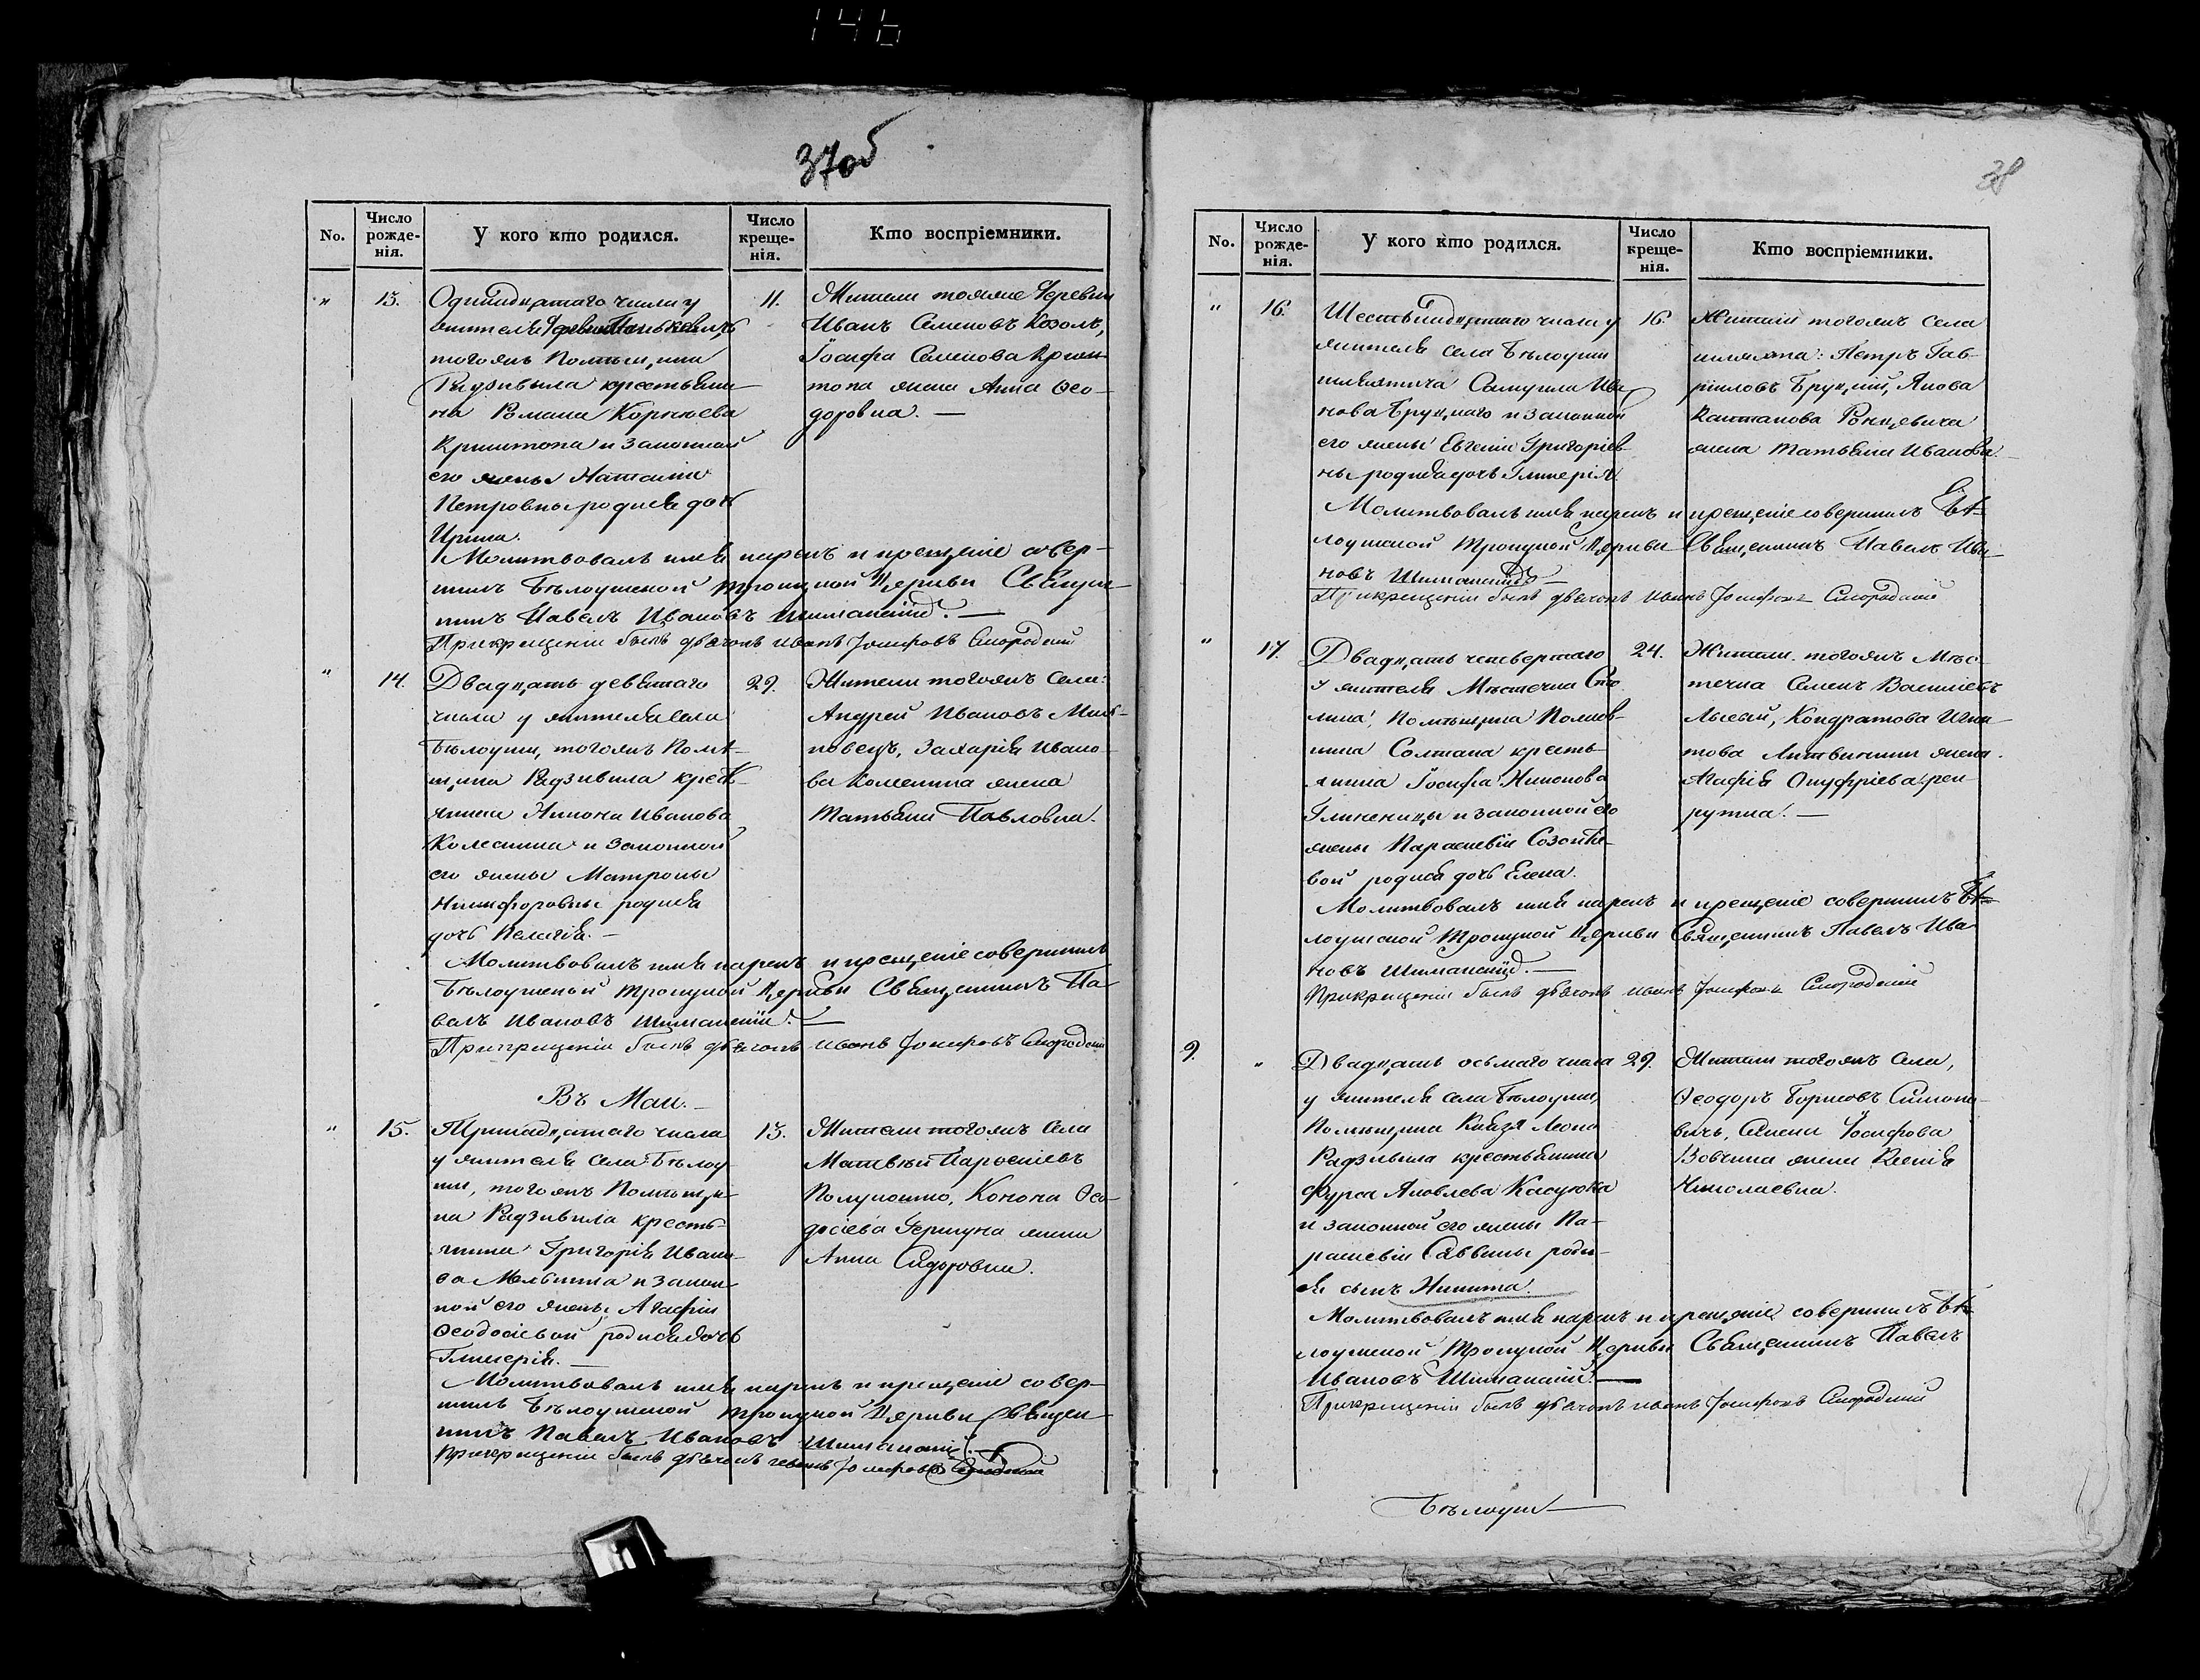 146
37об
38
No.
Число рожде-нія.
У кого кто родился.
Число креще-нія.
Кто воспріемники.
" 13.
Одинадцатаго числа у
жителя
тогожъ Помѣщика
Радзивила крестьяни
на Романа Корнѣева
и законной
его жены Настасіи
Петровны родися дочь
Ирина.
11.
Жители тояже Деревни
Иванъ Семеновъ Козолъ,
Іосифа Семенова
жена Анна Ѳео-
доровна. —
Молитвовалъ имя нарекъ и крещеніе совер-
шилъ Бѣлоушской Троицкой Церкви Священ
никъ Павелъ Ивановъ Шиманскій. —
При крещеніи былъ дьячокъ Иванъ Іосифовъ Смородскій
" 14.
Двадцать девятаго
числа у жителя села
Бѣлоуши, тогожъ Помѣ-
щика Радзивила крест
янина Никона Иванова
Колесника и законной
его жены Матроны
Никифоровны родися
дочь Пелагія. —
29.
Жители тогожъ Села:
Андрей Ивановъ
Захарія Ивано-
ва Колесника жена
Татьяна Павловна.
Молитвовалъ имя нарекъ и крещеніе совершилъ
Бѣлоушской Троицкой Церкви Священникъ Па-
велъ Ивановъ Шиманскій. —
При крещеніи былъ дьячокъ Иванъ Іосифовъ Смородскій
Въ Маи. —
" 15.
Тринадцатаго числа
у жителя села Бѣлоу-
ши, тогожъ Помѣщи-
ка Радзивила кресть-
янина Григорія Ивано-
ва Мельника и закон
ной его жены Агафіи
Ѳеодосіевой родися дочь
Гликерія. —
13.
Жители тогожъ Села
Матвѣй
Полукошко, Конона Ѳео-
досіева жена
Анна Сидоровна.
Молитвовалъ имя нарекъ и крещеніе совер-
шилъ Бѣлоушской Троицкой Церкви Священ
никъ Павелъ Ивановъ Шиманскій. —
При крещеніи былъ дьячокъ Иванъ Іосифовъ Смородскій
No.
Число рожде-нія.
У кого кто родился.
Число креще-нія.
Кто воспріемники.
" 16.
Шестьнадцатаго числа у
жителя села Бѣлоуши
шляхтича Самуила Ива
нова Бруцкаго и законной
его жены Евгеніи Григоріев-
ны родися дочь Гликерія.
16.
Жители тогожъ села
шляхта: Петръ Гав-
риловъ Бруцкій, Якова
жена Татьяна Иванова. —
Молитвовалъ имя нарекъ и крещеніе совершилъ Бѣ-
лоушской Троицкой Церкви Священникъ Павелъ Ива-
новъ Шиманскій —
При крещеніи былъ дьячокъ Иванъ Іосифовъ Смородскій
" 17.
Двадцать четвертаго
у жителя Мѣстечка Сто
лина, Помѣщика Полков-
ника Солтана кресть-
янина Іосифа Никонова
Глинскицы и законной его
жены Параскевіи Созонтіе-
вой родися дочь Елена.
24.
Жители тогожъ Мѣс-
течка Семенъ Василіевъ
Лысый, Кондратова Игна-
това Литвинки жена
Агафія Онуфріева рек-
рутка. —
Молитвовалъ имя нарекъ и крещеніе совершилъ Бѣ-
лоушской Троицкой Церкви Священникъ Павелъ Ива
новъ Шиманскій. —
При крещеніи былъ дьячокъ Иванъ Іосифовъ Смородскій
9. "
Двадцать осьмаго числа
у жителя села Бѣлоуши,
Помѣщика Князя Леона
Радзивила крестьянина
Фурса Яковлева
и законной его жены Па-
раскевіи Саввины роди-
ся сынъ Никита.
29.
Жители тогожъ Села,
Ѳеодоръ Борисовъ Симоно-
вичъ, Семена Іосифова
Вовчина жена Ксенія
Николаевна.
Молитвовалъ имя нарекъ и крещеніе совершилъ Бѣ
лоушской Троицкой Церкви Священникъ Павелъ
Ивановъ Шиманскій. —
При крещеніи былъ дьячокъ Иванъ Іосифовъ Смородскій
Бѣлоуш